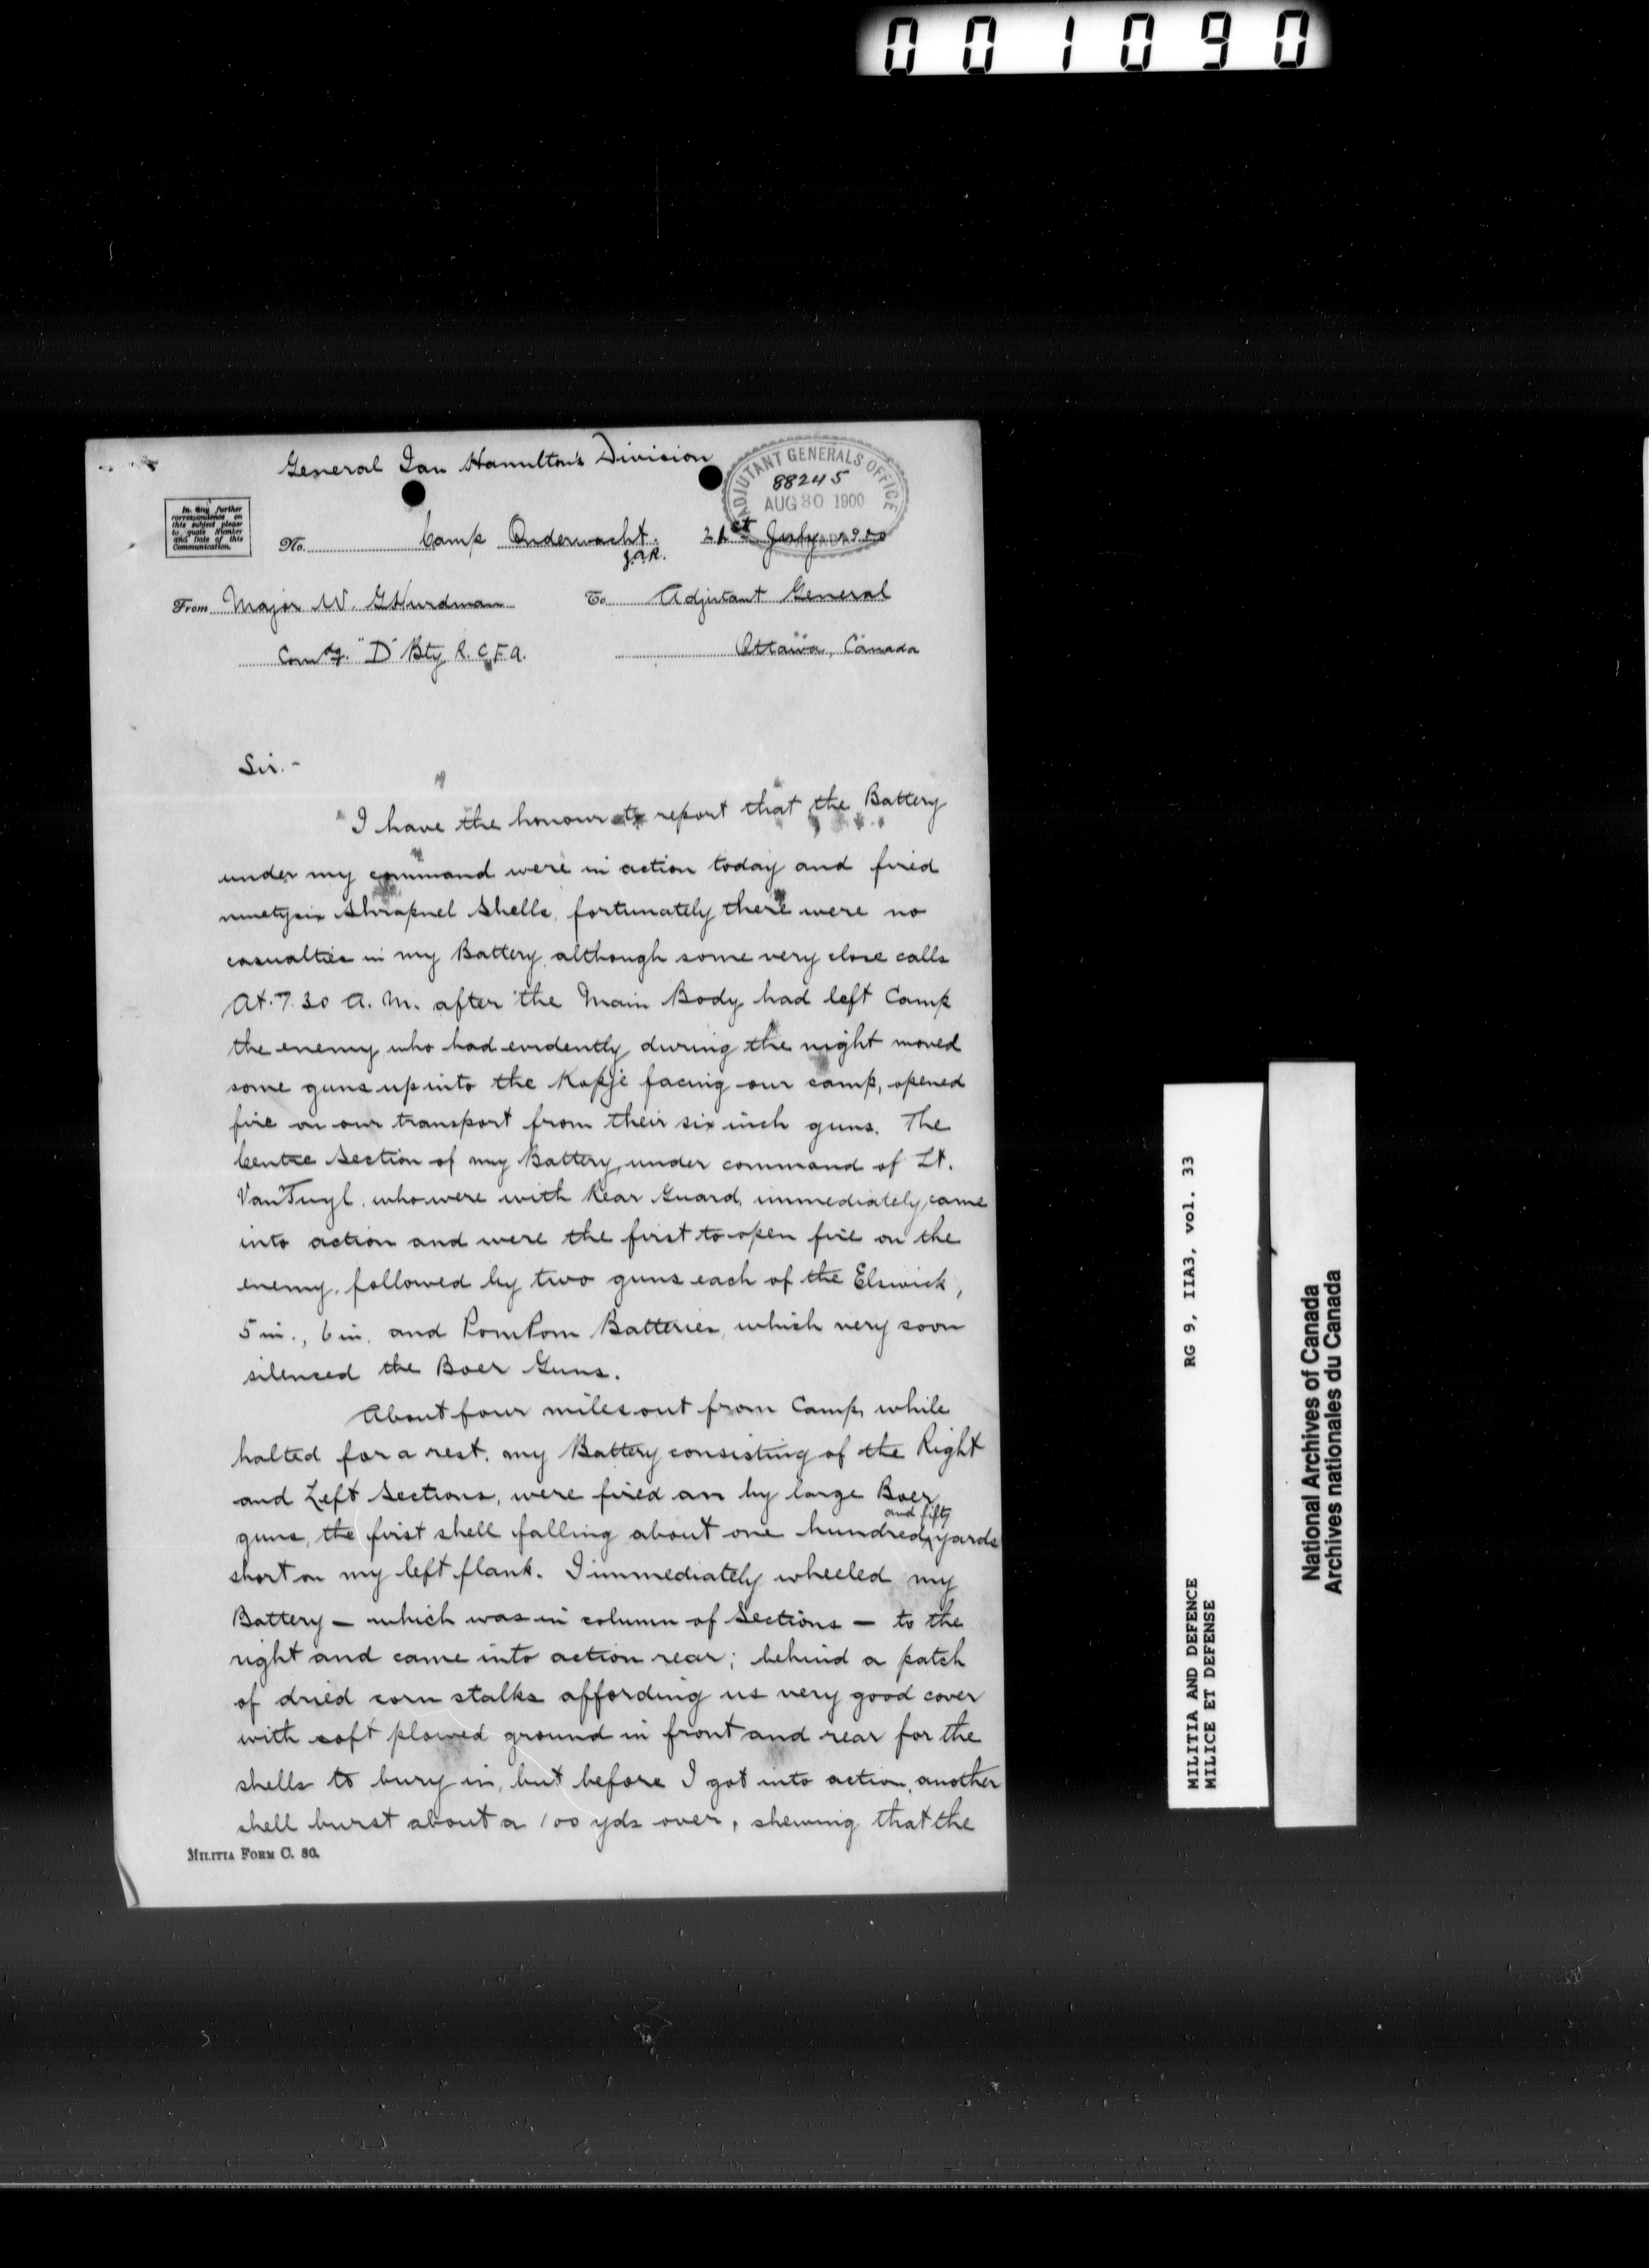 001090
General Ian Hamilton's Division
ADJUTANT GENERALS OFFICE
88245
AUG 30 1900
CANADA
In any further
correspondence on
this subject please
to quote Number
and Date of this
Communication.
No. Camp Onderwacht. 21st July 1900
Z.A.R.
From Major W. G Hurdman To Adjutant General
Comdg. "D" Bty R.C.F.A. Ottawa, Canada
Sir.-
I have the honour to report that the Battery
under my command were in action today and fired
ninetysix Shrapnel Shells, fortunately there were no
casualties in my Battery, although some very close calls
At. 7.30 A.M. after the Main Body had left Camp
the enemy who had evidently during the night moved
some guns up into the Kopje facing our camp, opened
fire on our transport from their six inch guns. The
Centre Section of my Battery, under command of Lt.
VanTuyl, who were with Rear Guard, immediately came
into action and were the first to open fire on the
enemy, followed by two guns each of the Elswick,
5 in., 6 in. and PomPom Batteries, which very soon
silenced the Boer Guns.
About four miles out from Camp, while
halted for a rest, my Battery consisting of the Right
and Left Sections, were fired on by large Boer
and fifty
guns, the first shell falling about one hundred yards
short on my left flank. I immediately wheeled my
Battery - which was in column of Sections - to the
right and came into action rear; behind a patch
of dried corn stalks affording us very good cover
with soft plowed ground in front and rear for the
shells to bury in, but before I got into action, another
shell burst about a 100 yds over, shewing that the
MILITIA FORM C. 80.
MILITIA AND DEFENCE RG 9, IIA3, vol. 33
MILICE ET DEFENSE
National Archives of Canada
Archives nationales du Canada